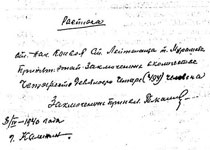 Расписка
от нач. конвоя ст. Лейтенанта т. Мурашева
заключенных в количестве
четыреста девяносто четыре (494) человека
Заключенных принял
3/IV – 1940 года
г. Калинин